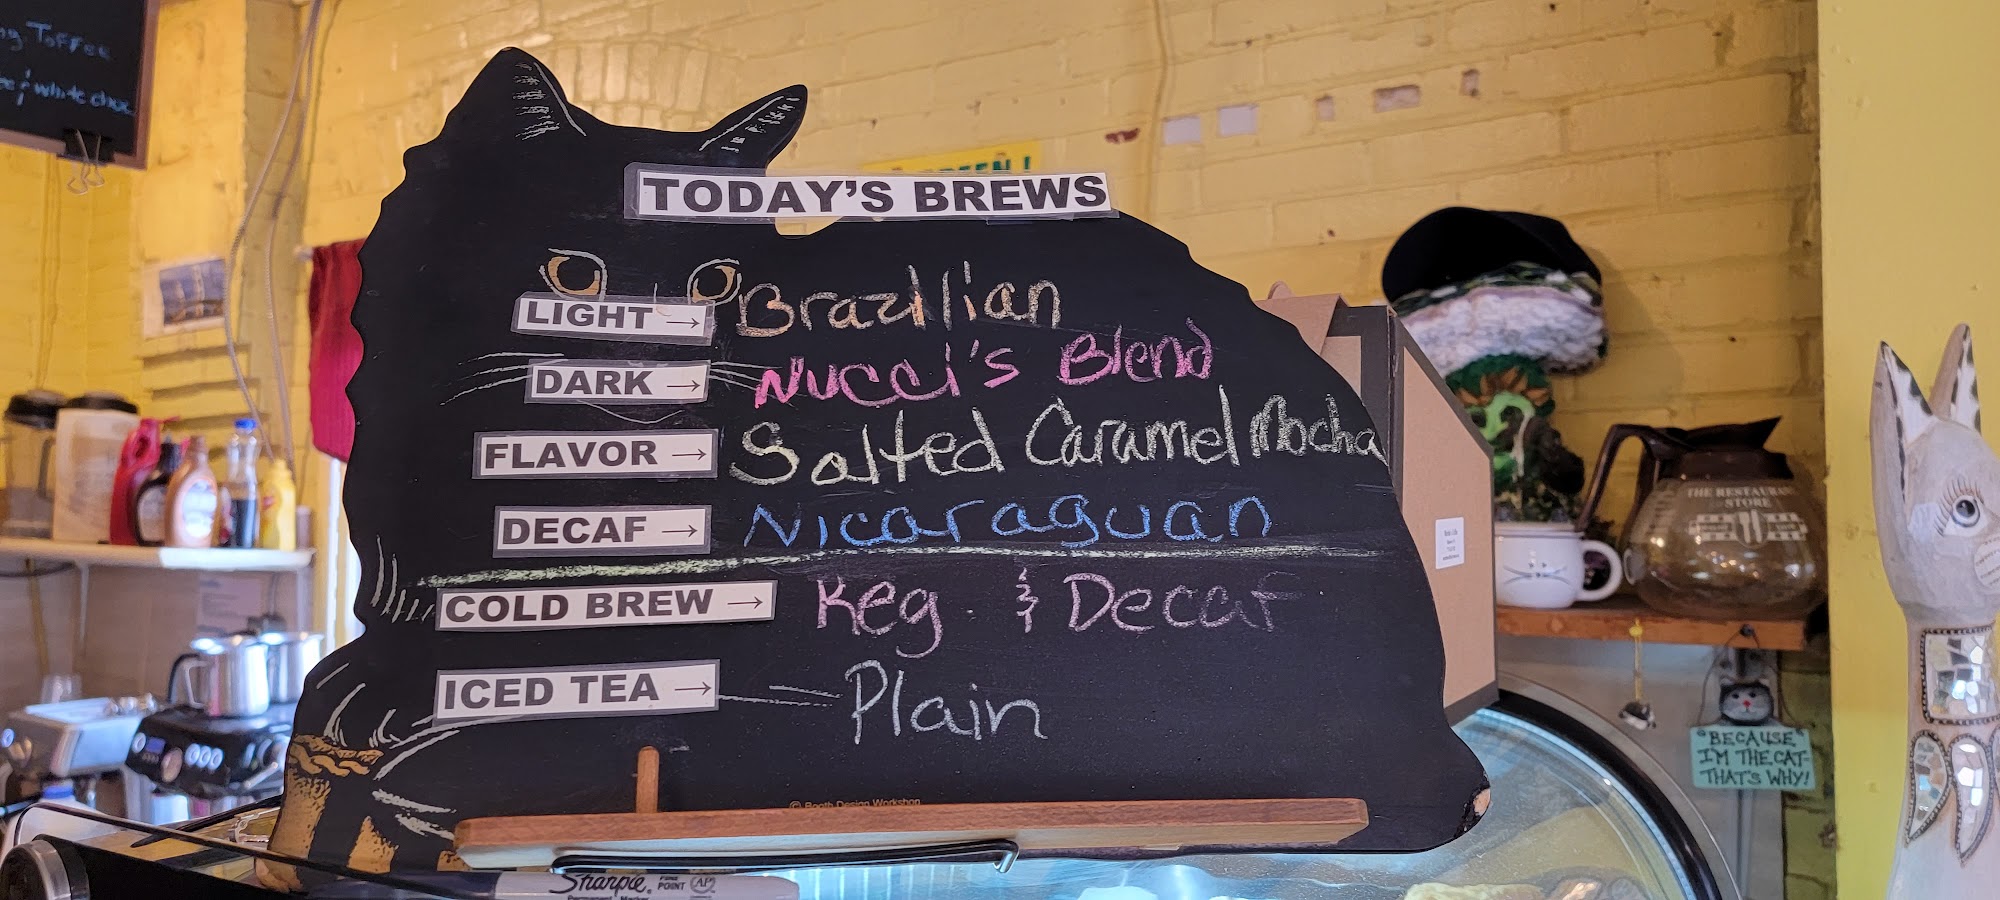 Toffee
& white choc
TODAY'S BREWS
LIGHT → Brazilian
DARK → Nucci's Blend
FLAVOR → Salted Caramel Mocha
DECAF → Nicaraguan
COLD BREW → Keg & Decaf
ICED TEA → Plain
© Booth Design Workshop
Sharpie
FINE POINT
AP
Permanent Marker
THE RESTAURANT
STORE
"BECAUSE
I'M THE CAT-
THAT'S WHY!